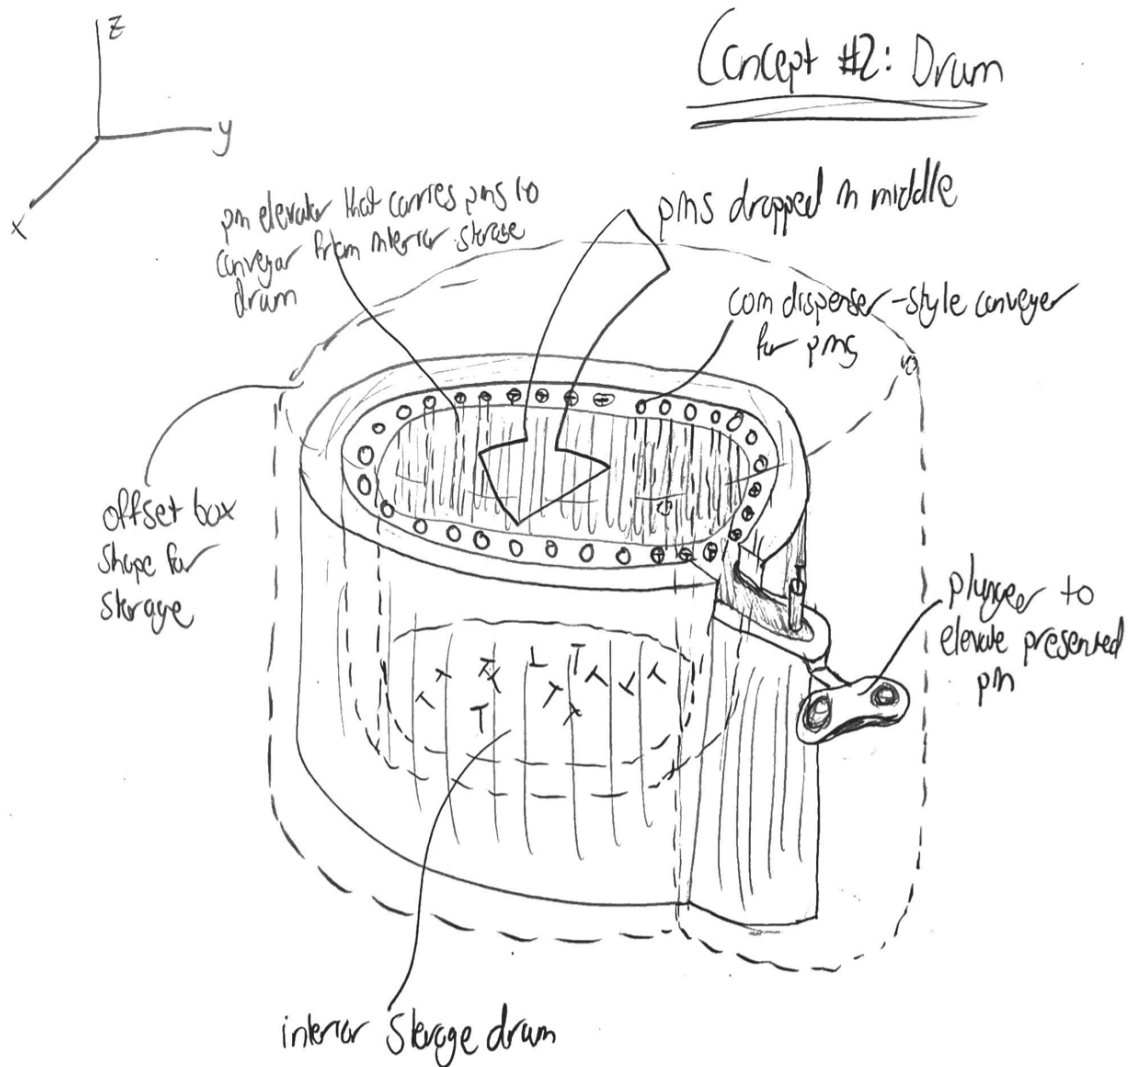 z
y
x
Concept #2: Drum
pin elevator that carries pins to
conveyor from interior storage
drum
pins dropped in middle
coin dispenser-style conveyer
for pins
offset box
shape for
storage
plunger to
elevate presented
pin
interior storage drum